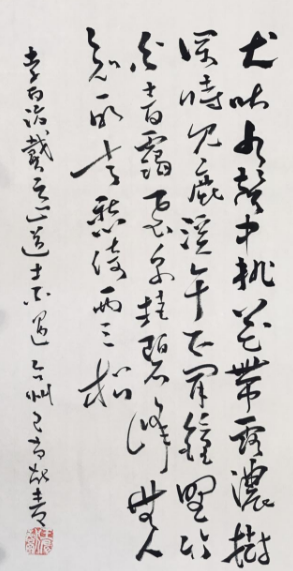 犬吠水聲中桃花帶露濃樹
深時見鹿溪午不聞鐘野竹
分青靄飛泉挂碧峰無人
知所去愁倚兩三松
李白訪戴天山道士不遇